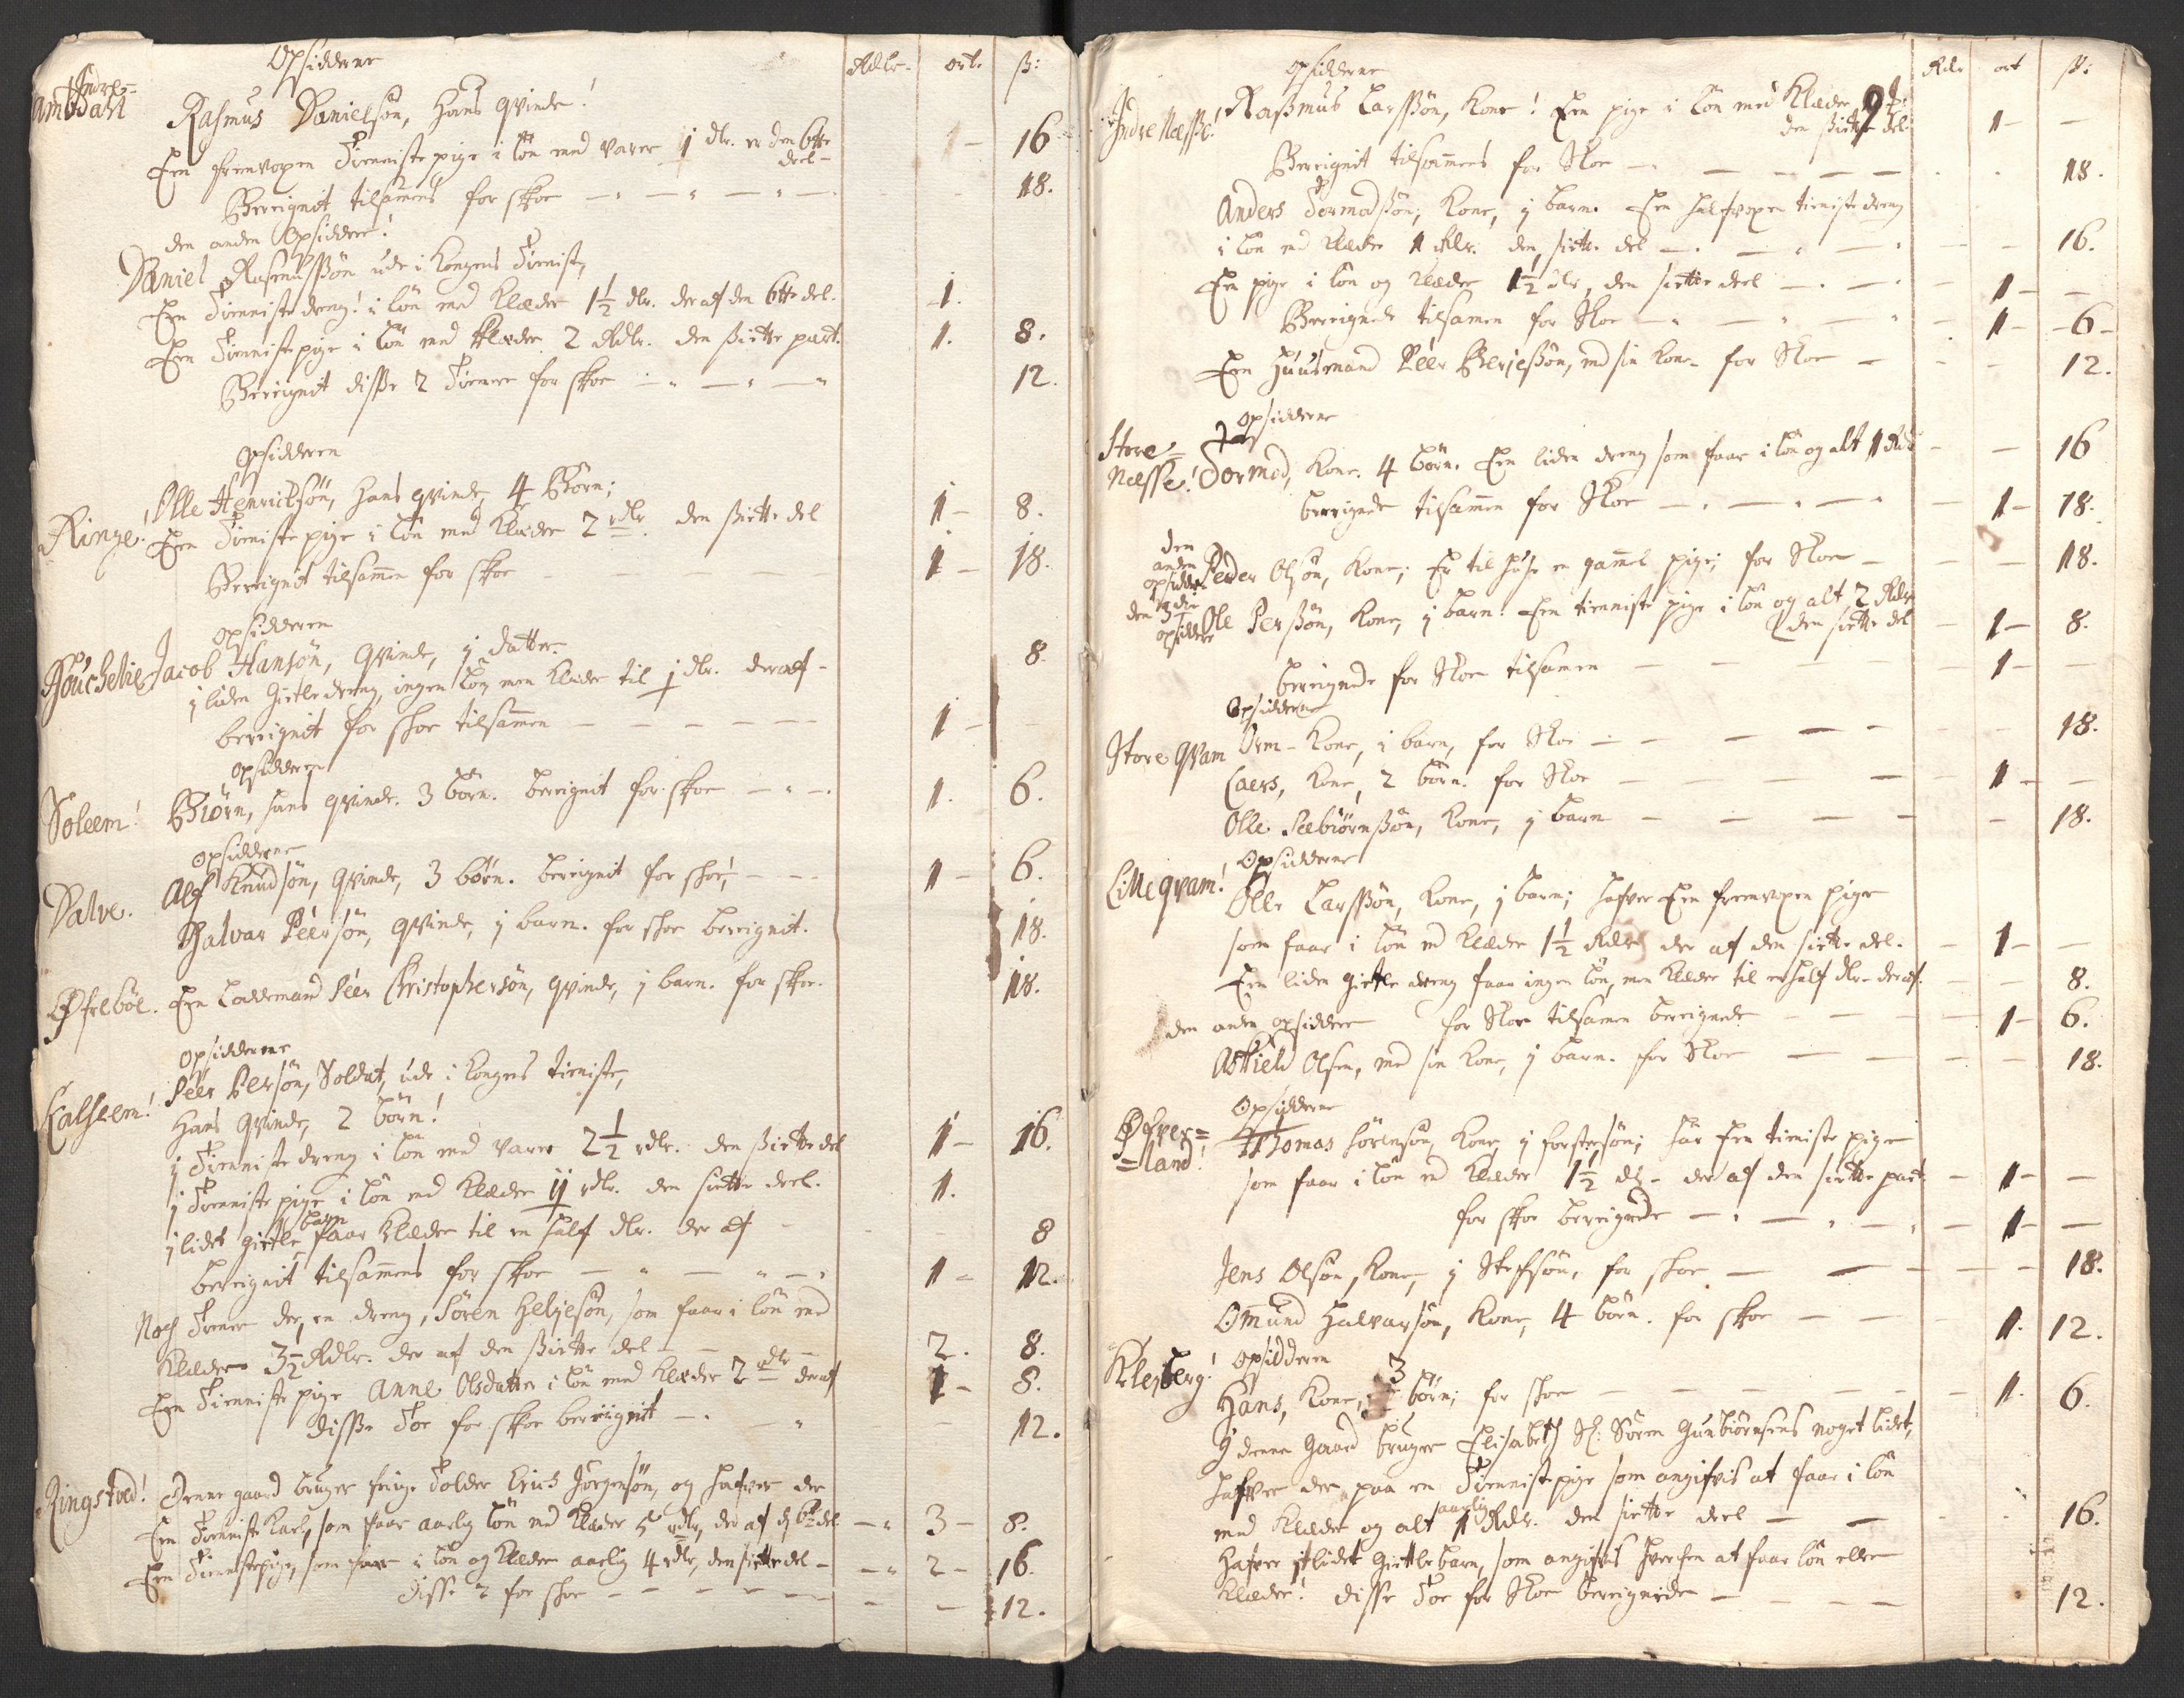 Opsiddern Rdlr. ort. ß:
Indre=
Ambdahl
Rasmus Danielsön, hans qvinde!
Een fremvoxen Tienniste pige i lön med varer 1 dlr. er den 6tte 1 - 16
deel -
Bereignet tilsammes for skoe - 18.
den anden Opsidder!
Daniel Rasmusßön ude i Kongens Tienist,
Een Tienniste dreng! i lön med Klæder 1½ dlr. der af den 6tte del. 1.
Een Tienniste pige i lön med Klæder 2 Rdlr. den siette part. 1. 8.
Bereignet disse 2 Tienner for skoe 12.
Opsidderen
Ringe! Olle Henrichsön, hans qvinde, 4 Börn;
Een Tieniste pige i lön med Klæder 2 rdlr. den siette del 1 - 8.
Bereignet tilsammen for skoe 1 - 18.
Opsidderen
Jacob Hansön, qvinde, j datter.
j liden Gietledreng, ingen lön men Klæder til j dlr. deraf - 8.
bereignit for skoe tilsammen 1 -
Opsidderen
Soleem! Biörn, hans qvinde. 3 börn. bereignit for skoe 1. 6.
Opsidderne
Valve. Alf Knudsön, qvinde, 3 börn. bereignit for skoe, 1 - 6.
Halvar Peersön, qvinde, j barn. for skoe bereignit. 18.
Öfreböe. Een Loddemand Peer Christophersön, qvinde, j barn. for skoe. 18.
Opsidderne
Calheem! Peer Persön, Soldat, ude i Kongens tieniste,
Hans qvinde, 2 börn!
j Tienniste dreng i lön med varer 2½ rdlr. den siette del 1 - 16.
j Tienniste pige i lön med Klæder ij rdlr. den siette deel. 1.
barn
j lidet gietle faar Klæder til en half dlr. der af - 8
bereignit tilsammens for skoe 1 - 12.
Noch Tienner der, en dreng, Sören Heljesön, som faar i lön med
Klæder 3½ Rdlr. der af den siette del 2. 8.
Een Tienniste pige Anne Olsdatter i lön med Klæder 2 rdlr deraf 1 - 8.
disse Toe for skoe bereignit 12.
Ringstved! Denne gaard bruger sige Tolder Erich Jörgensön, og hafver der
Een Tienniste Karl, som faar aarlig lön med Klæder 5 rdlr, der af dj 6te del 3 - 8.
Een Tiennistepige, som faar i lön og Klæder aarlig 4 rdlr, den siette del - 2 - 16.
disse 2 for skoe 12.
Opsidderne Rdlr ort ß: 9
Indre Næsse! Rasmus Larsßön, Kone! Een pige i lön med Klæder
den siette del 1 -
Bereignit tilsammens for Skoe 18.
Anders Tormodßön, Kone, j barn. Een halfvoxen tieniste dreng
i lön med Klæder 1 Rdlr. den siette del 16.
En pige i lön og Klæder 1½ dlr, den siette deel 1 -
Bereignede tilsamen for Skoe 1 - 6 -
Een Huusmand Peer Berjesßön, med sin Kone - for Skoe 12.
Opsidderne
Store=
Næsse! Tormod, Kone. 4 börn. Een liden dreng som faar i lön og alt 1 Rdlr 16
bereignede tilsammen for Skoe 1 - 18.
den
anden
opsidder Peder Olsön, Kone; Er til huse en gammel pige; for Skoe 18.
den 3die
opsidder Ole Persßön, Kone, j barn. Een tienniste pige i lön og alt 2 Rdlr
den siette del 1 - 8.
bereignede for Skoe tilsamen 1 -
Opsidderne
Store Qvam Orm - Kone, i barn, for Skoe 18.
Laers, Kone, 2 börn. for Skoe 1 -
Olle Sæbiörnsßön, Kone, j barn 18.
Opsidderne
Lille qvam! Olle Larsßön, Kone, j barn; hafver Een fremvoxen pige
som faar i lön med Klæder 1½ Rdlr der af den siette del. 1 -
Een liden gietle dreng faar ingen lön, men Klæder til en half dlr. deraf. 8.
den anden opsidder for Skoe tilsamen bereignede 1 - 6.
Askield Olsen, med sin Kone, j barn. for Skoe 18.
Opsidderne
Öfver=
=land! Thomas Sörensön, Kone, j fostersön; har Een tieniste pige
som faar i lön med Klæder 1½ dlr - der af den siette part 1 -
for skoe bereignede 1 -
Jens Olsön, Kone, j Stefsön, for skoe 18.
Omund Halvarsön, Kone, 4 börn. for skoe 1. 12.
Opsidderen
Klejberg! Hans, Kone, 3 börn; for skoe 1. 6.
I denne Gaard bruger Elisabeth Sl: Sören Gunbiörnsens noget lidet,
hafver der paa en Tiennistepige som angifvis at faar i lön
aarlig
med Klæder og alt 1 Rdlr. den siette deel 16.
Hafver it lidet Gietlebarn, som angifvis hverchen at faar lön eller
Klæder! disse Toe for Skoe bereignede 12.